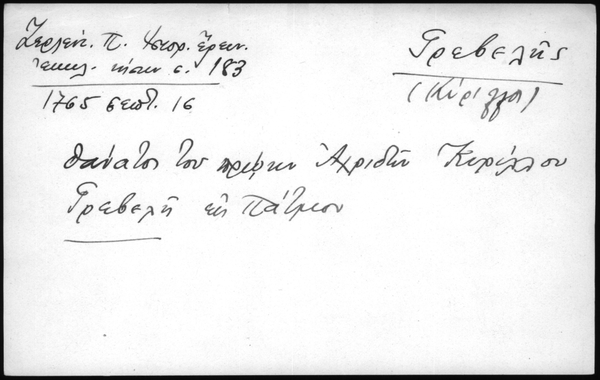 Ζερλέντ. Π. Ἱστορ. Ἔρευν.
Ἐκκλ. νήσων σ. 183
1765 Σεπτ. 16
Γρεβενῆς
(Κύριλλος)
Θάνατος τοῦ πρώην Ἀχριδῶν Κυρίλλου
Γρεβενῆ εἰς Πάτμον